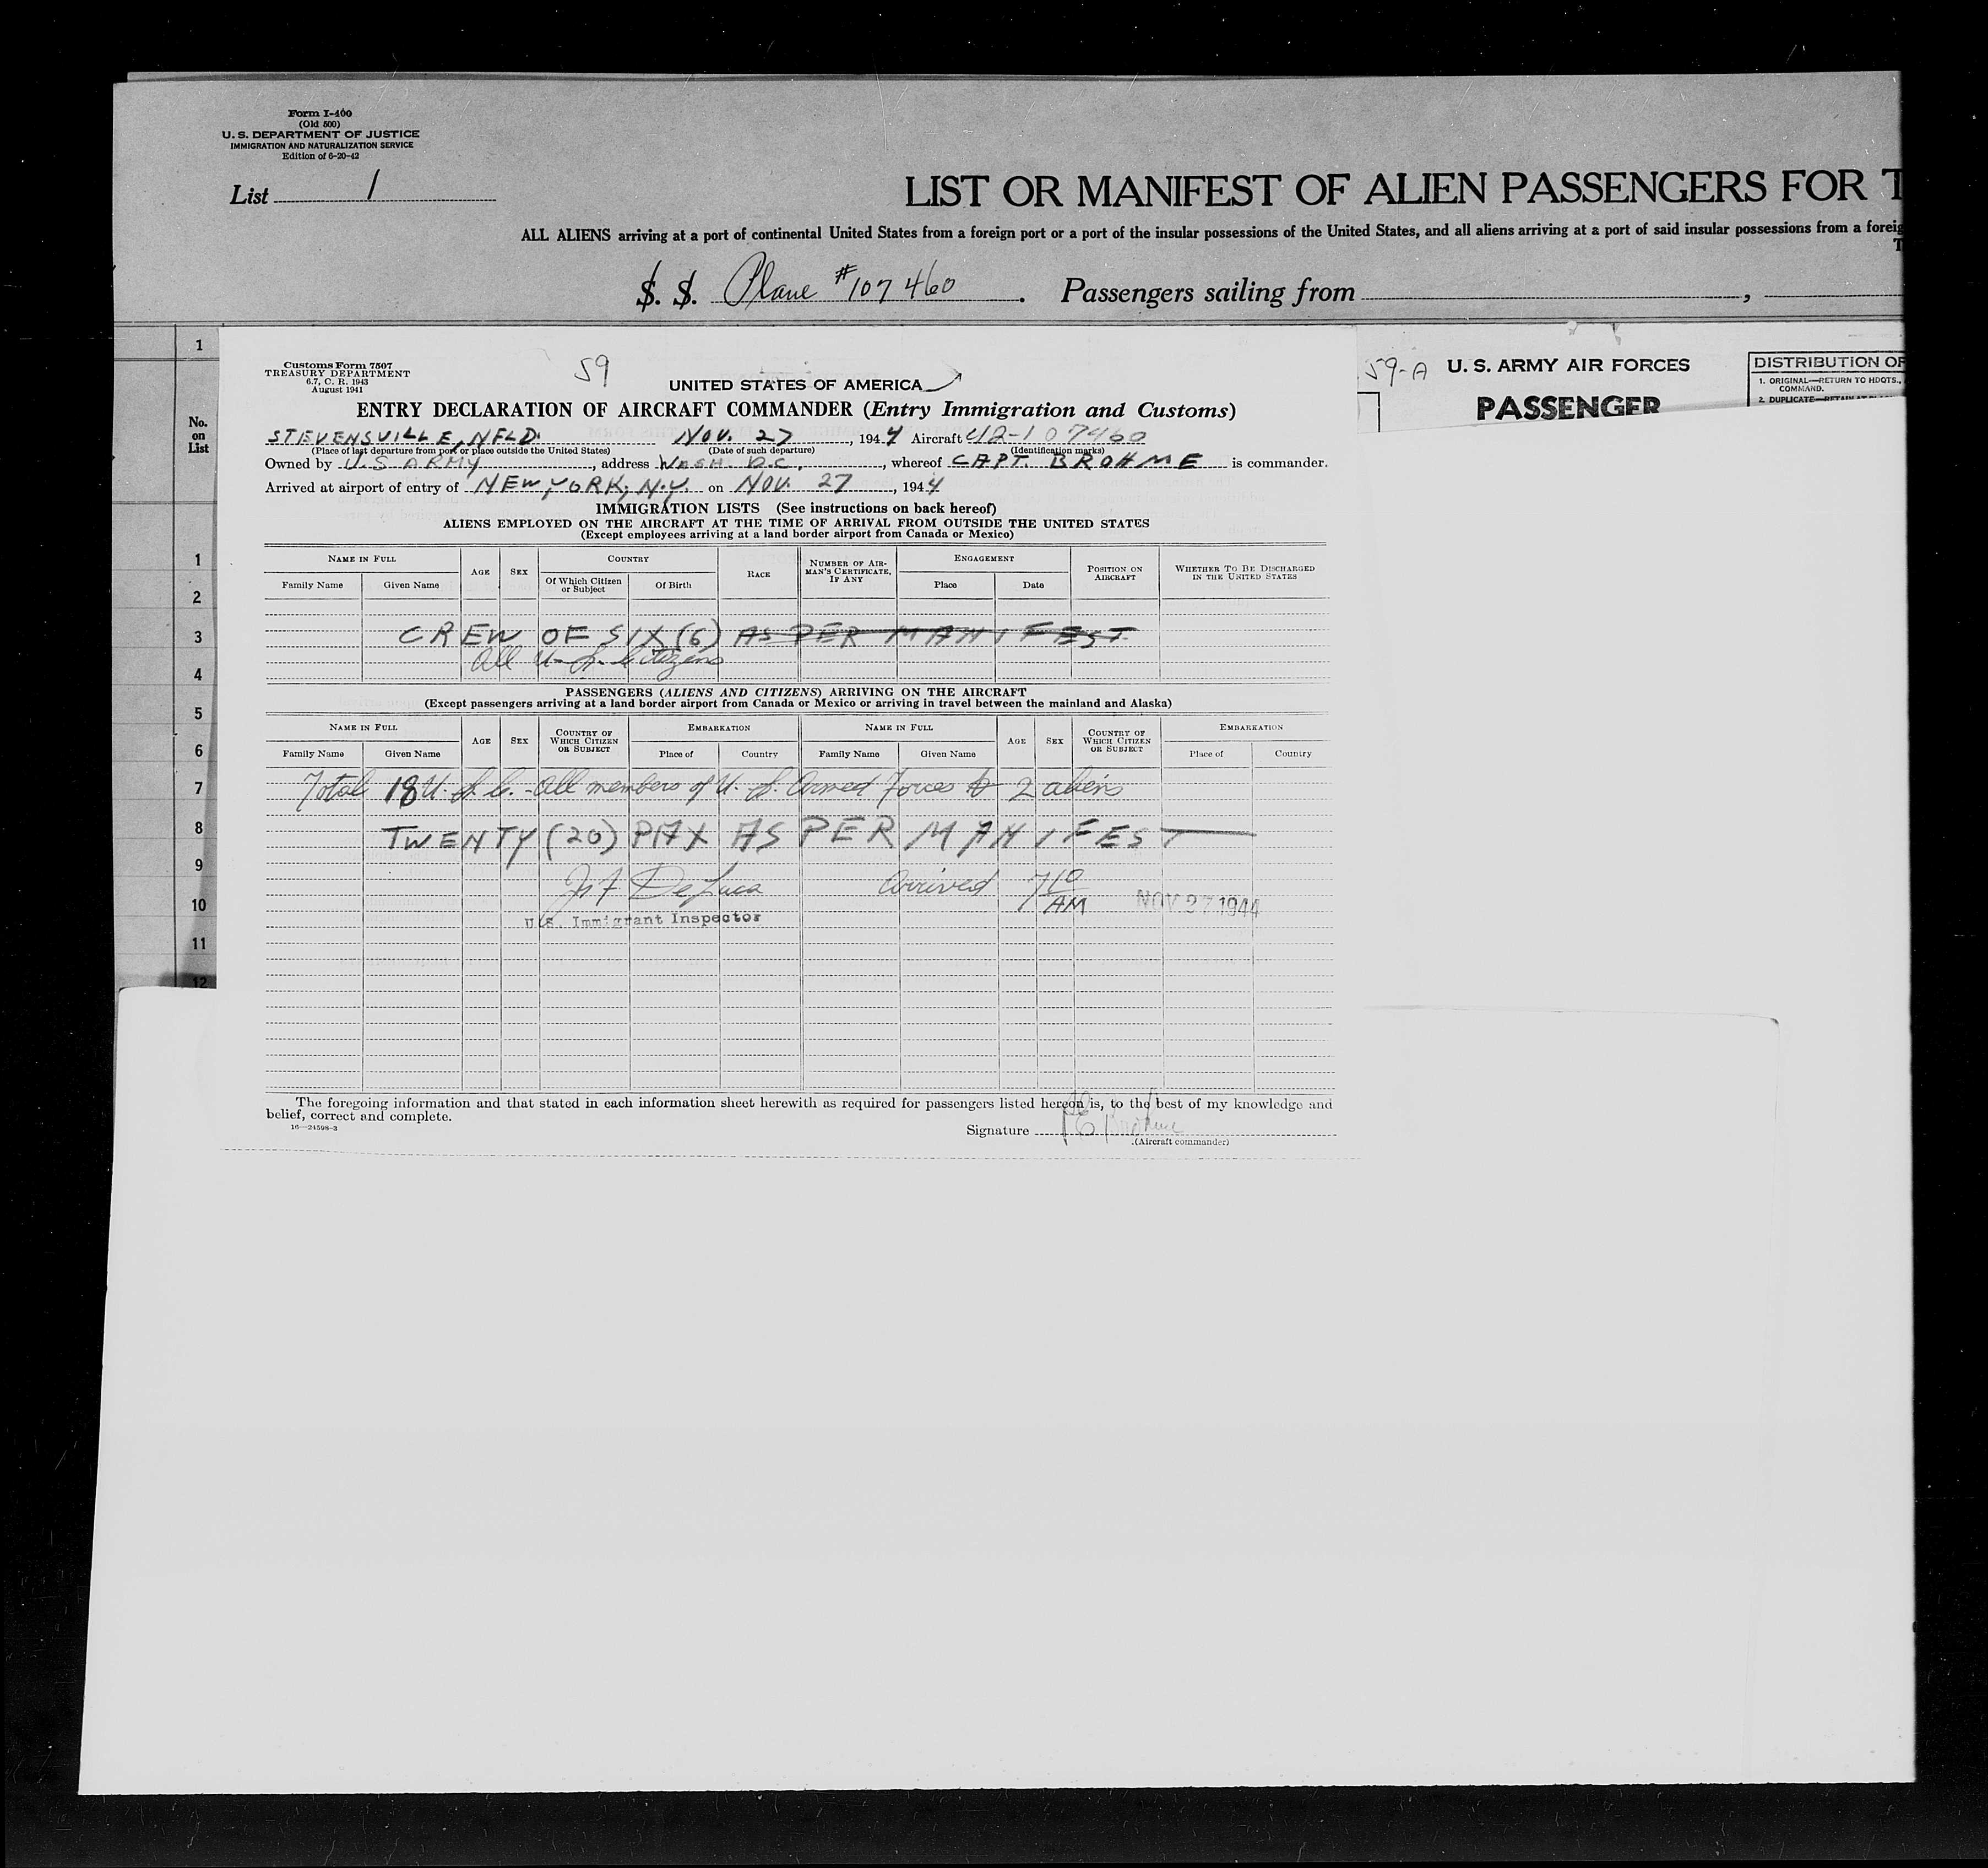 Form I-400
(Old 500)
U. S. DEPARTMENT OF JUSTICE
IMMIGRATION AND NATURALIZATION SERVICE
Edition of 6-20-42
List 1
LIST OR MANIFEST OF ALIEN PASSENGERS FOR T
ALL ALIENS arriving at a port of continental United States from a foreign port or a port of the insular possessions of the United States, and all aliens arriving at a port of said insular possessions from a foreig
T
S. S. Plane #107460. Passengers sailing from , 
1
No.
on
List
1
2
3
4
5
6
7
8
9
10
11
12
Customs Form 7507
TREASURY DEPARTMENT
6.7, C. R. 1943
August 1941
59
UNITED STATES OF AMERICA
ENTRY DECLARATION OF AIRCRAFT COMMANDER (Entry Immigration and Customs)
STEVENSVILLE, NFLD. NOV. 27, 1944 Aircraft 42-107460
(Place of last departure from port or place outside the United States) (Date of such departure) (Identification marks)
Owned by U.S ARMY, address WASH. D.C., whereof CAPT. BROHME is commander.
Arrived at airport of entry of NEW YORK, N.Y. on NOV. 27, 1944
IMMIGRATION LISTS (See instructions on back hereof)
ALIENS EMPLOYED ON THE AIRCRAFT AT THE TIME OF ARRIVAL FROM OUTSIDE THE UNITED STATES
(Except employees arriving at a land border airport from Canada or Mexico)
NAME IN FULL AGE SEX COUNTRY RACE NUMBER OF AIRMAN'S CERTIFICATE, IF ANY ENGAGEMENT POSITION ON AIRCRAFT WHETHER TO BE DISCHARGED IN THE UNITED STATES
Family Name Given Name Of Which Citizen or Subject Of Birth Place Date
CREW OF SIX (6) AS PER MANIFEST
All U.S. Citizens
PASSENGERS (ALIENS AND CITIZENS) ARRIVING ON THE AIRCRAFT
(Except passengers arriving at a land border airport from Canada or Mexico or arriving in travel between the mainland and Alaska)
NAME IN FULL AGE SEX COUNTRY OF WHICH CITIZEN OR SUBJECT EMBARKATION NAME IN FULL AGE SEX COUNTRY OF WHICH CITIZEN OR SUBJECT EMBARKATION
Family Name Given Name Place of Country Family Name Given Name Place of Country
Total 18 U.S.C. - All members of U.S. Armed Forces & 2 aliens
TWENTY (20) PAX AS PER MANIFEST
De Luca Arrived 7 10 AM NOV 27 1944
U.S. Immigrant Inspector
The foregoing information and that stated in each information sheet herewith as required for passengers listed hereon is, to the best of my knowledge and
belief, correct and complete.
16—24598-3
Signature Brohme
(Aircraft commander)
59-A U. S. ARMY AIR FORCES
PASSENGER
DISTRIBUTION OF
1. ORIGINAL—RETURN TO HDQTS.,
COMMAND.
2. DUPLICATE—RETAIN AT